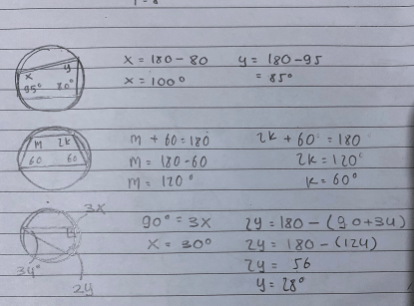 x = 180 - 80 y = 180 - 95
x = 100° = 85°
x y
95° 80°
m + 60 = 180 2k + 60° = 180
m = 180 - 60 2k = 120°
m = 120° k = 60°
m 2k
60 60
3x
90° = 3x 2y = 180 - (90 + 34)
x = 30° 2y = 180 - (124)
2y = 56
y = 28°
34°
2y